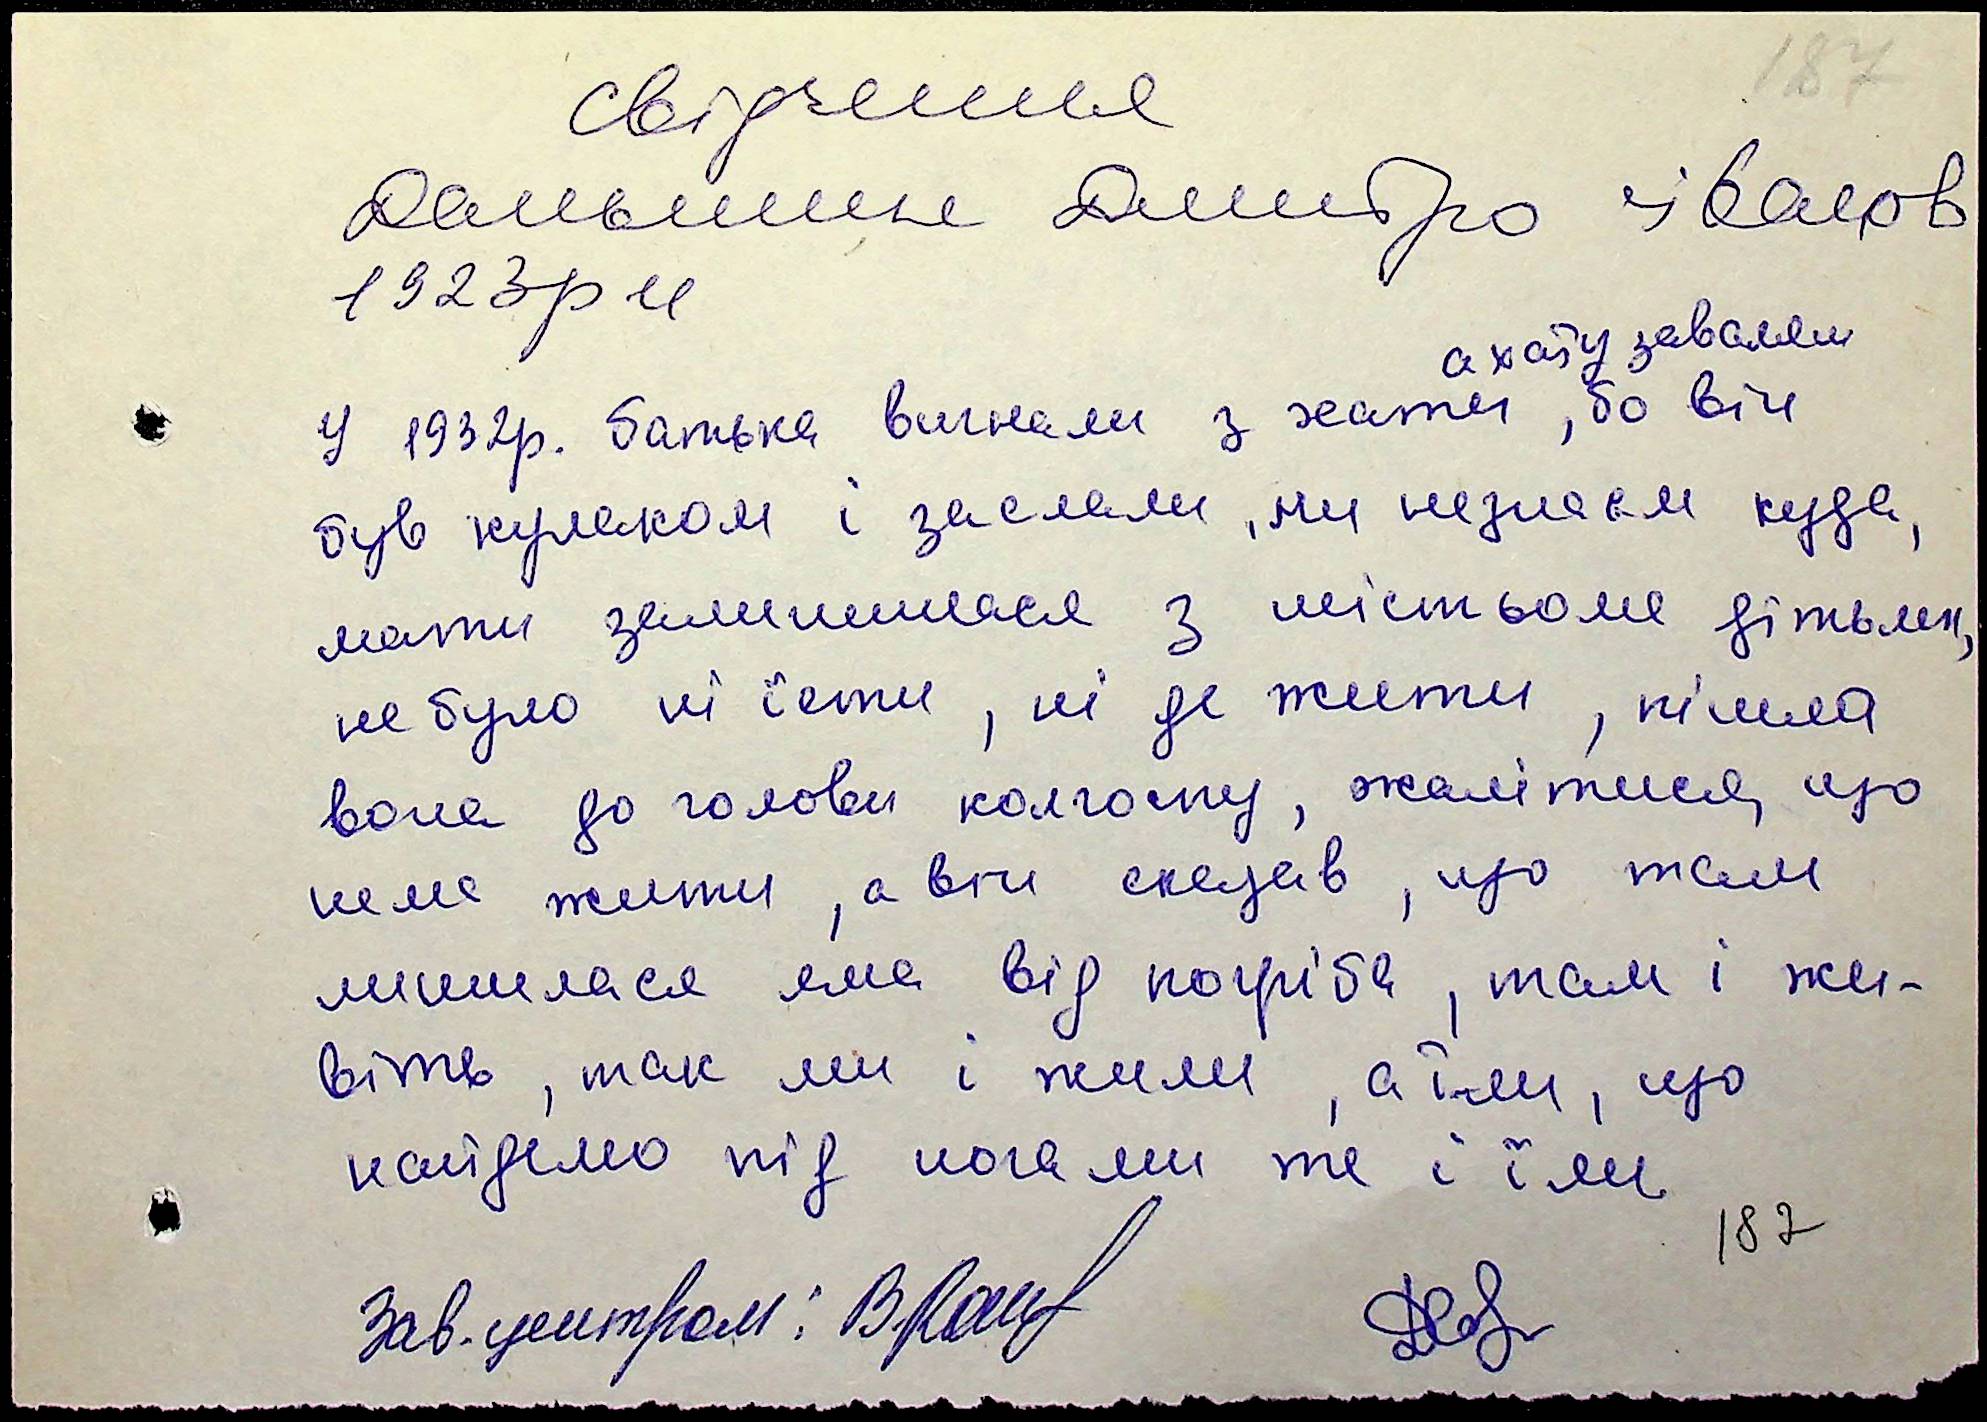 187
Свідчення
Дмитро Іванов
1923р н
а хату завалили
У 1932р. батька вигнали з хати, бо він
був кулаком і заслали, ми незнаєм куда,
мати залишилася з шістьома дітьми,
не було ні їсти, ні де жити, пішла
вона до голови колгоспу, жалітися, що
нема жити, а він сказав, що там
лишилася яма від погріба, там і жи-
віть, так ми і жили, а їли, що
найдемо під ногами те і їли
187
Зав. центром: